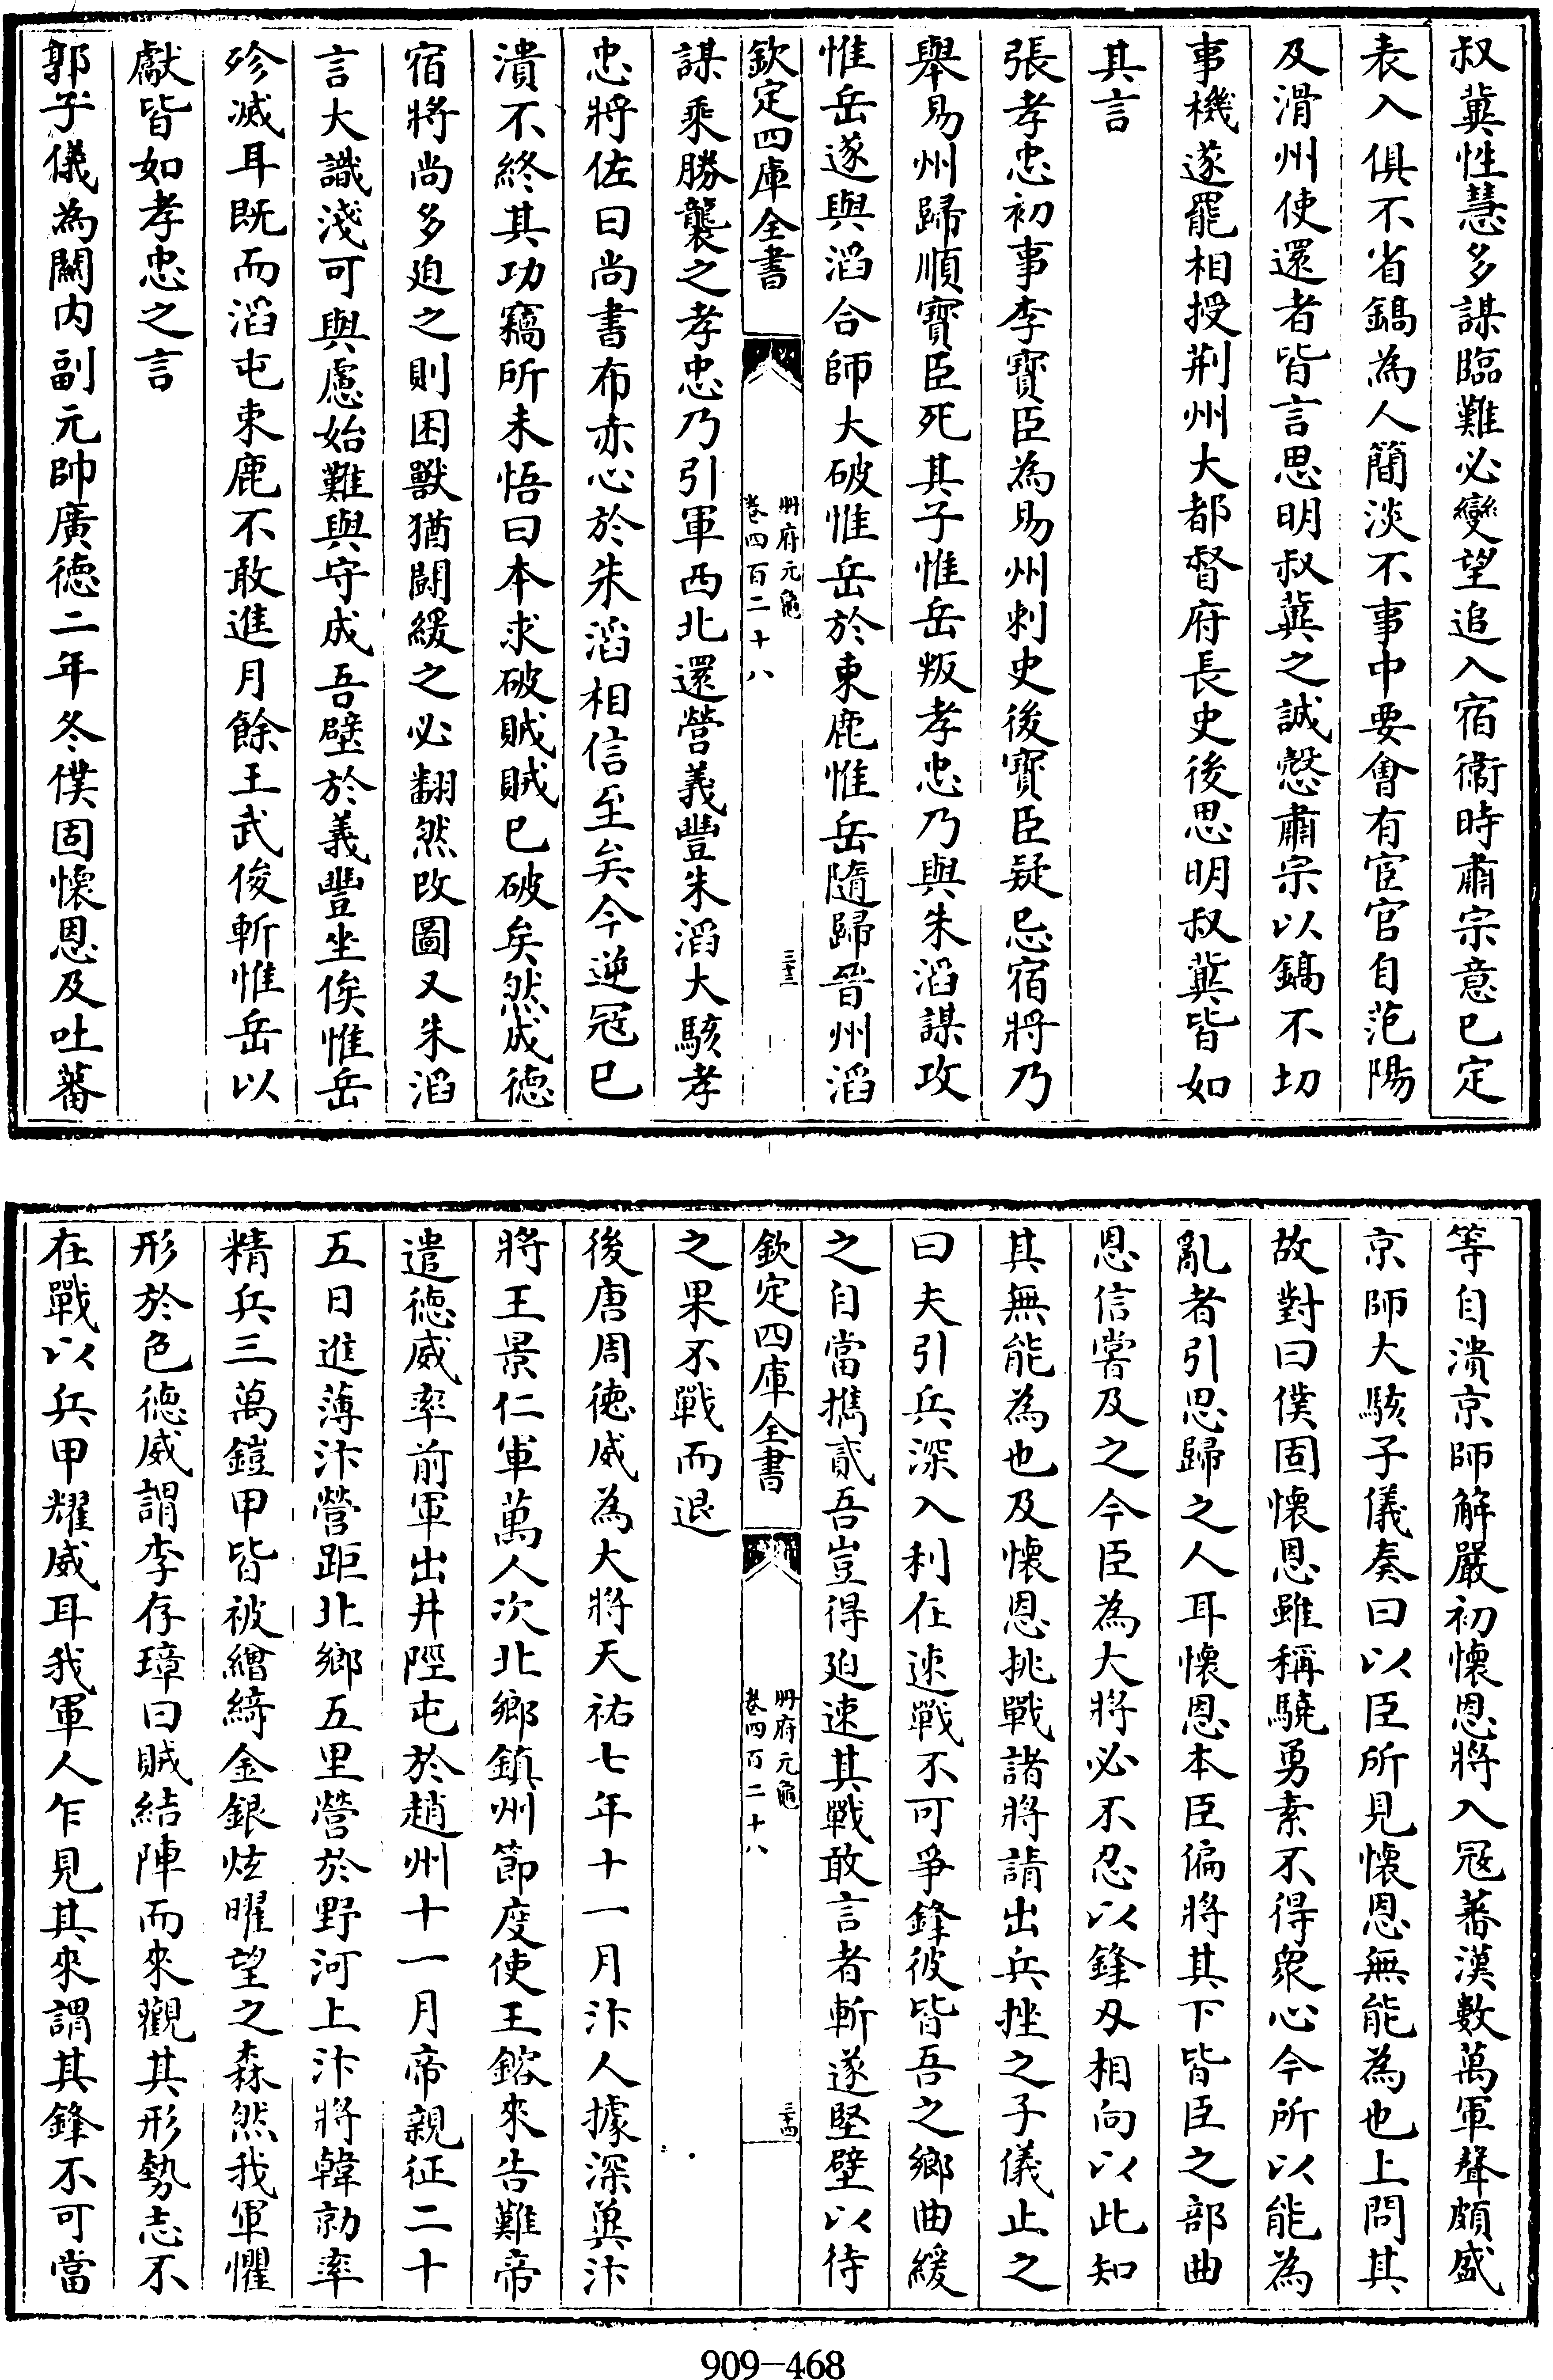 叔冀性慧多謀臨難必變望追入宿衞時肅宗意已定
表入俱不省鎬為人簡淡不事中要會有宦官自范陽
及滑州使還者皆言思明叔冀之誠慤肅宗以鎬不切
事機遂罷相授荆州大都督府長史後思明叔冀皆如
其言
張孝忠初事李寶臣為易州刺史後寶臣疑忌宿將乃
舉易州歸順寶臣死其子惟岳叛孝忠乃與朱滔謀攻
惟岳遂與滔合師大破惟岳於東鹿惟岳隨歸晉州滔
欽定四庫全書
冊府元龜
卷四百二十八
三十三
謀乘勝襲之孝忠乃引軍西北還營義豐朱滔大駭孝
忠將佐曰尚書布赤心於朱滔相信至矣今逆冦已
潰不終其功竊所未悟曰本求破賊賊已破矣然成德
宿將尚多廹之則困獸猶鬭緩之必翻然改圖又朱滔
言大識淺可與慮始難與守成吾壁於義豐坐俟惟岳
殄滅耳既而滔屯束鹿不敢進月餘王武俊斬惟岳以
獻皆如孝忠之言
郭子儀為關内副元帥廣德二年冬僕固懷恩及吐蕃
等自潰京師解嚴初懷恩將入冦蕃漢數萬軍聲頗盛
京師大駭子儀奏曰以臣所見懷恩無能為也上問其
故對曰僕固懷恩雖稱驍勇素不得衆心今所以能為
亂者引思歸之人耳懷恩本臣偏將其下皆臣之部曲
恩信嘗及之今臣為大將必不忍以鋒刃相向以此知
其無能為也及懷恩挑戰諸將請出兵挫之子儀止之
曰夫引兵深入利在速戰不可爭鋒彼皆吾之鄉曲緩
之自當擕貳吾豈得廹速其戰敢言者斬遂堅壁以待
欽定四庫全書
冊府元龜
卷四百二十八
三十四
之果不戰而退
後唐周徳威為大將天祐七年十一月汴人據深冀汴
將王景仁軍萬人次北鄉鎮州節度使王鎔來告難帝
遣徳威率前軍出井陘屯於趙州十一月帝親征二十
五日進薄汴營距北鄉五里營於野河上汴將韓勍率
精兵三萬鎧甲皆被繒綺金銀炫曜望之森然我軍懼
形於色徳威謂李存璋曰賊結陣而來觀其形勢志不
在戰以兵甲耀威耳我軍人乍見其來謂其鋒不可當
909-468